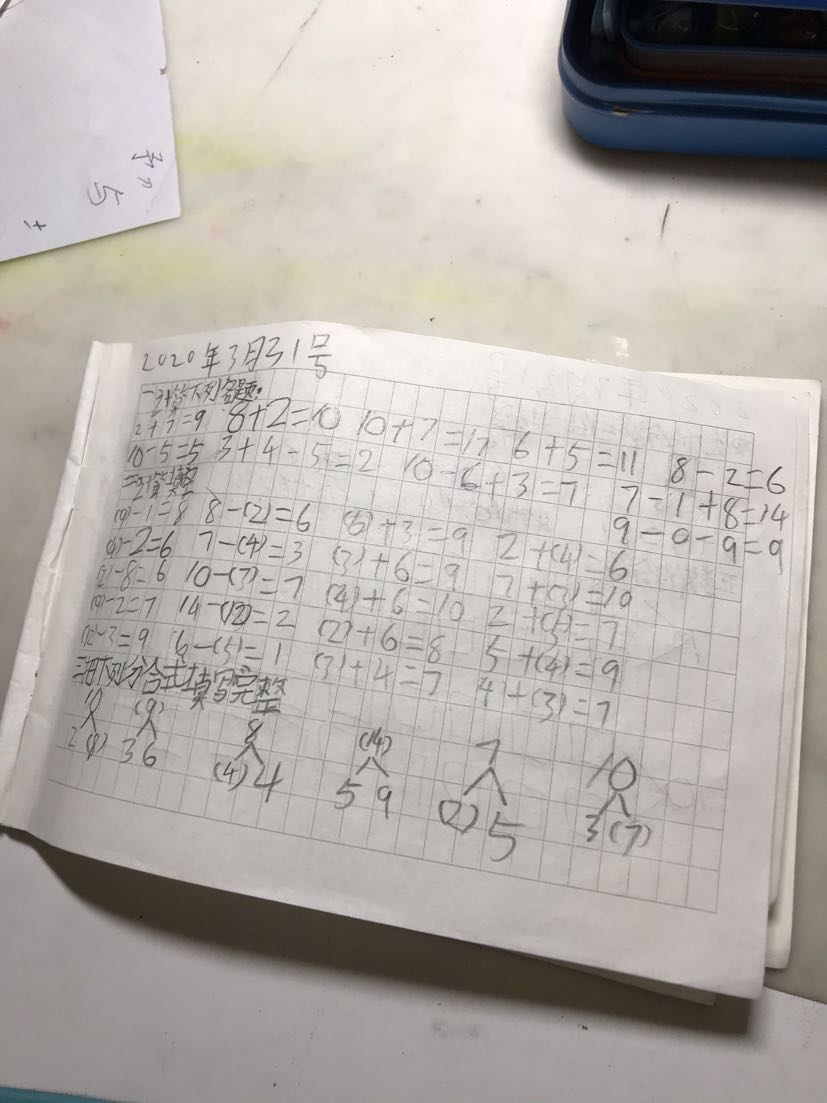 2020年3月31号
一计算下列各题.
2+7=9 8+2=10 10+7=17 6+5=11 8-2=6
10-5=5 3+4-5=2 10-6+3=7 7-1+8=14
9-0-9=9
二我填
(9)-1=8 8-(2)=6 (6)+3=9 2+(4)=6
-2=6 7-(4)=3 (3)+6=9 7+(3)=10
-8=6 10-(3)=7 (4)+6=10 2+(5)=7
(9)-2=7 14-(12)=2 (2)+6=8 5+(4)=9
(12)-3=9 6-(5)=1 (3)+4=7 4+(3)=7
三把下列分合式填写完整
10 (9) 8 (14) 7 10
2 (8) 3 6 (4) 4 5 9 (2) 5 3 (7)
5